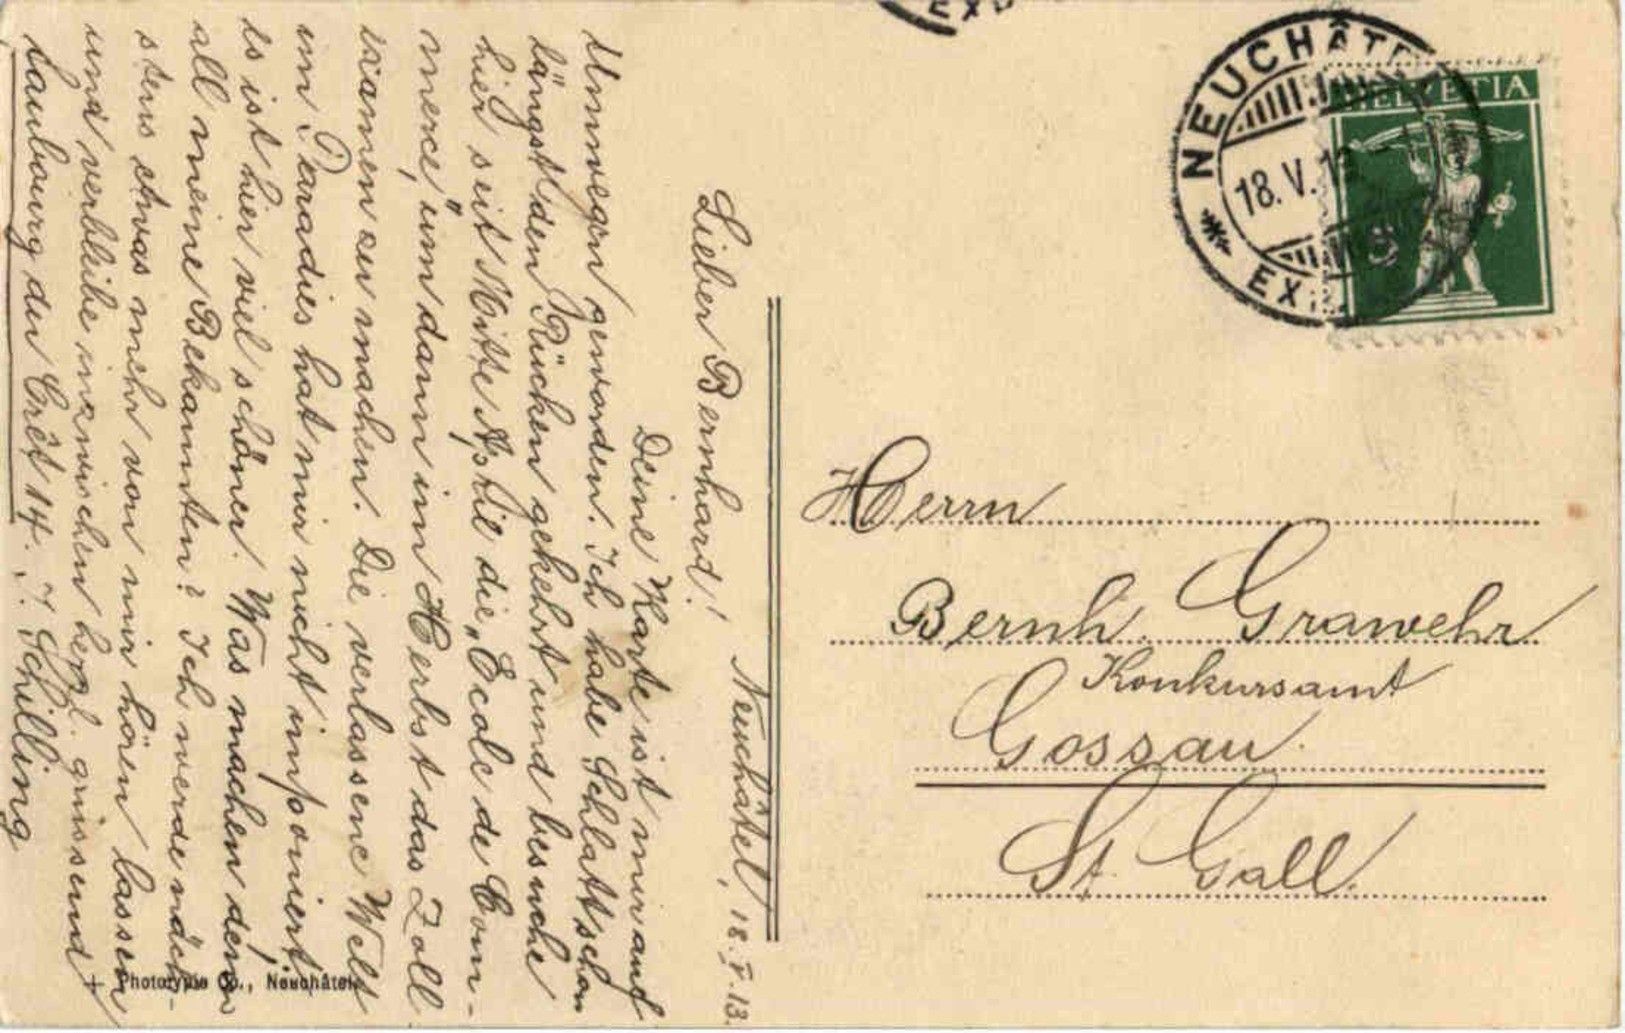 Neuchâtel, 18. V. 13.
Lieber Bernhard!
Deine Karte ist mir auf
Umwegen geworden. Ich habe Schlatt schon
längst den Rücken gekehrt und besuche
hier seit Mitte April die „Ecole de Com-
merce“, um dann im Herbst das Zoll
examen zu machen. Die verlassene Welt
im Paradies hat mir nicht imponiert,
es ist hier viel schöner. Was machen denn
all meine Bekannten? Ich werde näch-
stens etwas mehr von mir hören lassen
und verbleibe inzwischen herzl. grüssend
J. Schilling
Faubourg du Crêt 14.
Phototypie Co., Neuchâtel
NEUCHÂTEL
18. V. 13
EX
HELVETIA
5
Herrn
Bernh. Grawehr
Konkursamt
Gossau
St. Gall.